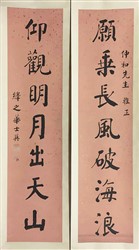 仲和先生雅正
願乘長風破海浪
仰觀明月出天山